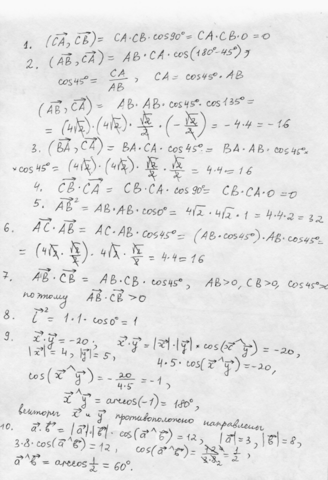 1. (CA⃗, CB⃗) = CA·CB·cos90° = CA·CB·0 = 0
2. (AB⃗, CA⃗) = AB·CA·cos(180°-45°),
cos45° = CA/AB ; CA = cos45°·AB
(AB⃗, CA⃗) = AB·AB·cos45°·cos135° =
= (4√2)·(4√2)·√2/2·(-√2/2) = -4·4 = -16
3. (BA⃗, CA⃗) = BA·CA·cos45° = BA·AB·cos45°·
·cos45° = (4√2)·(4√2)·√2/2·√2/2 = 4·4 = 16
4. CB⃗·CA⃗ = CB·CA·cos90° = CB·CA·0 = 0
5. AB⃗² = AB·AB·cos0° = 4√2·4√2·1 = 4·4·2 = 32
6. AC⃗·AB⃗ = AC·AB·cos45° = (AB·cos45°)·AB·cos45° =
= (4√2·√2/2)·4√2·√2/2 = 4·4 = 16
7. AB⃗·CB⃗ = AB·CB·cos45°, AB>0, CB>0, cos45°>0
поэтому AB⃗·CB⃗ > 0
8. i⃗² = 1·1·cos0° = 1
9. x⃗·y⃗ = -20; x⃗·y⃗ = |x⃗|·|y⃗|·cos(x⃗^y⃗) = -20,
|x⃗| = 4, |y⃗| = 5, 4·5·cos(x⃗^y⃗) = -20,
cos(x⃗^y⃗) = -20/4·5 = -1,
x⃗^y⃗ = arccos(-1) = 180°,
векторы x⃗ и y⃗ противоположно направлены
10. a⃗·b⃗ = |a⃗|·|b⃗|·cos(a⃗^b⃗) = 12, |a⃗| = 3, |b⃗| = 8,
3·8·cos(a⃗^b⃗) = 12, cos(a⃗^b⃗) = 12/3·8 = 1/2,
a⃗^b⃗ = arccos 1/2 = 60°.